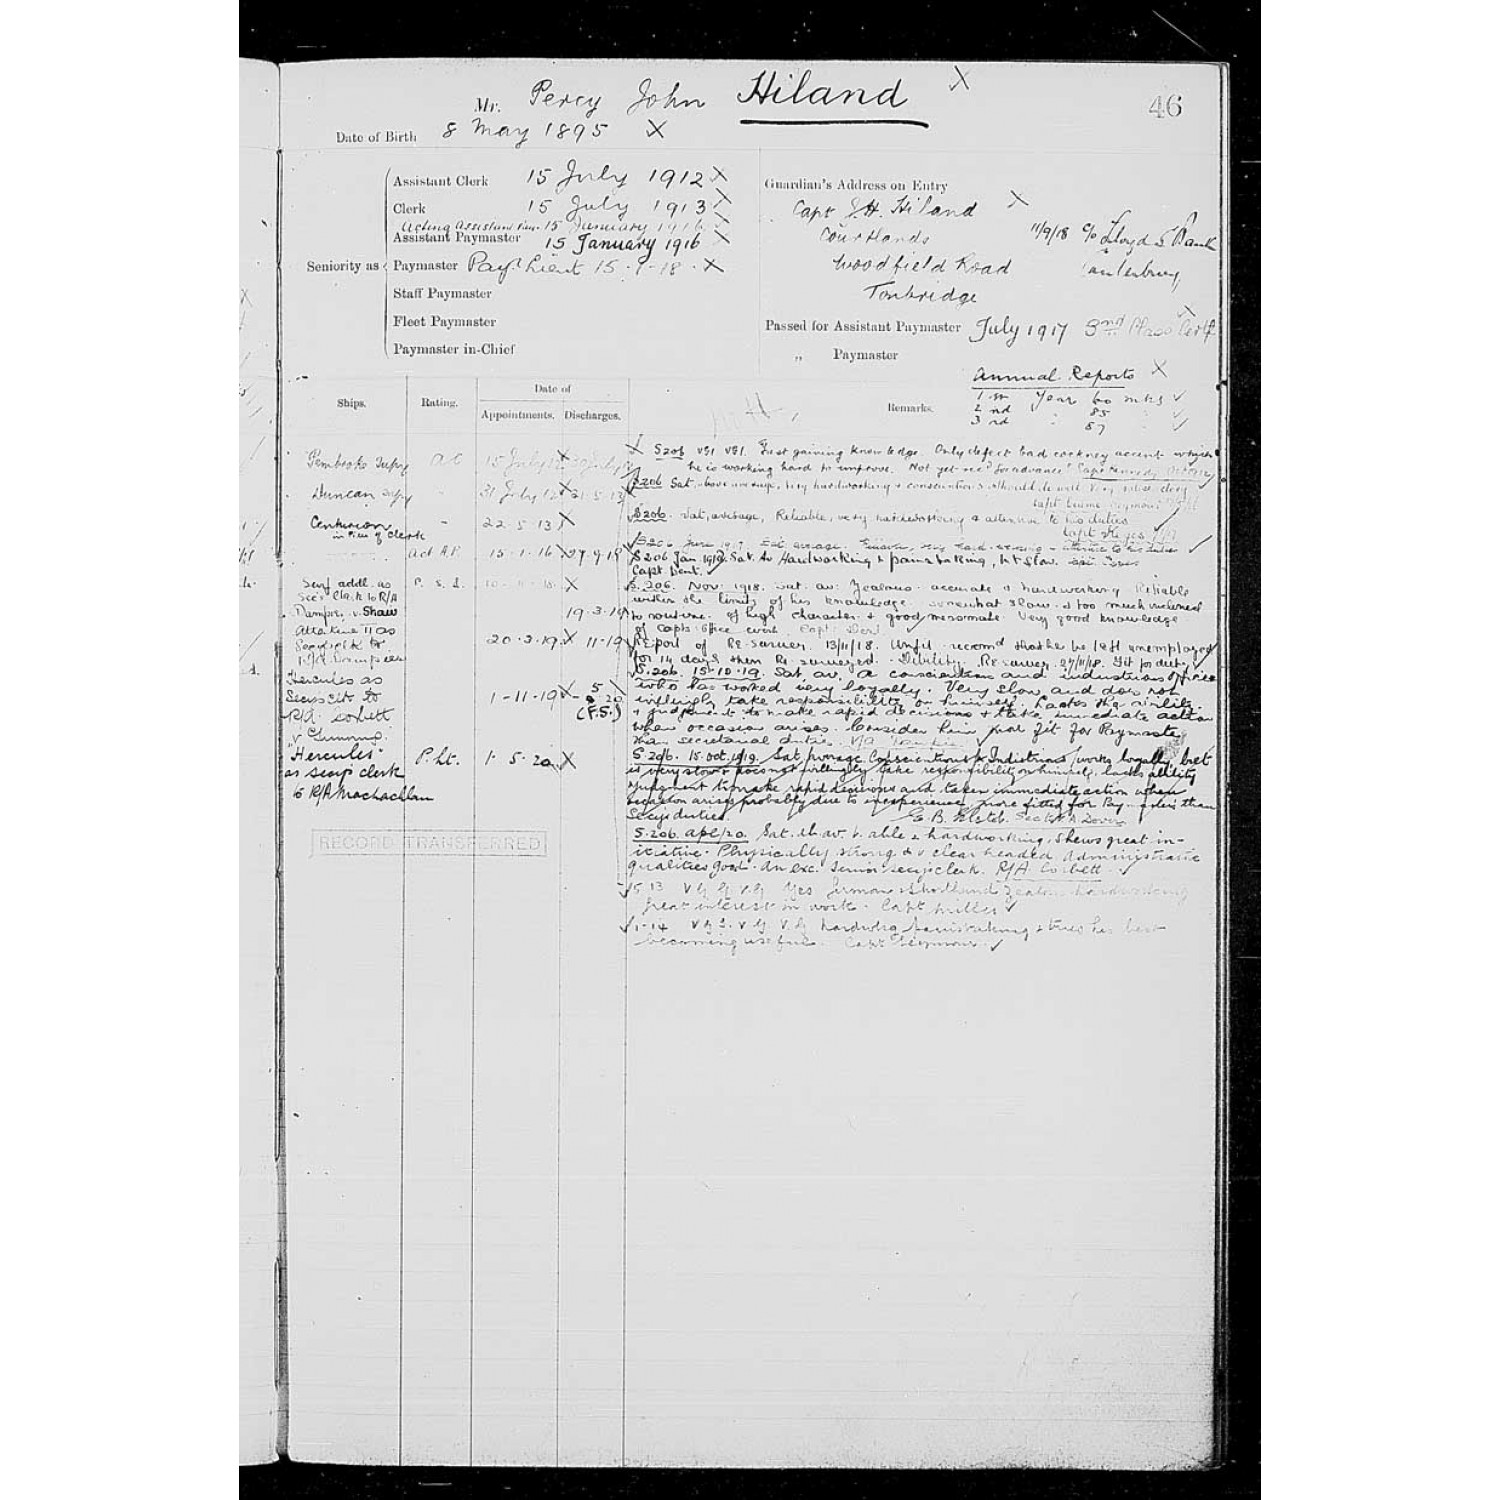 46
Mr. Percy John Hiland X
Date of Birth 8 May 1895 X
Assistant Clerk 15 July 1912 X
Clerk 15 July 1913 X
Acting Assistant 15 January 1916 X
Assistant Paymaster 15 January 1916 X
Seniority as Paymaster Pay. Lieut 15.1.18. X
Staff Paymaster
Fleet Paymaster
Paymaster in-Chief
Guardian's Address on Entry
Capt J.H. Hiland X
Courtlands
Woodfield Road
Tonbridge
11/9/18 c/o Lloyds Bank
Passed for Assistant Paymaster July 1917 3rd Class Certf.
„ Paymaster
Annual Reports X
1st Year 60 mks ✓
2nd " 85 ✓
3rd " 87 ✓
Ships. Rating. Date of Appointments. Discharges. Remarks.
Pembroke Supy AC 15 July 12 X 30 July 12
Duncan Supy " 31 July 12 X 21.5.13
Centurion " 22.5.13 X
in lieu of Clerk
Act A.P. 15.1.16 X 27.9.18
Secy addl. as P.S.L. 10-11-18. X
Sec's Clerk to R/A
Dampr. v. Shaw 19.3.19
Attentive II as 20.3.19 X 11-19
Secy's clk to
R/A Dampier
Hercules as
Secy's Clk to 1-11-19 X - 5 - 20
R/A Corbett (F.S.)
v Cumming.
"Hercules" P.Lt. 1.5.20. X
as secy's clerk
to R/A Maclachlan
RECORD TRANSFERRED
S206 VG1 VG1. Fast gaining knowledge. Only defect bad cockney accent which
he is working hard to improve. Not yet recd for advance. Capt Kennedy
S206 Sat, above average, very hardworking & conscientious should do well
S206. Sat, average, Reliable, very hardworking & attentive to his duties
Capt Keyes
S206 June 1917 Sat. average. very hard-working & attentive to his duties ✓
S206 Jan 1918. Sat. Av Hardworking & painstaking, bit slow.
Capt. Dent. ✓
S.206. Nov: 1918. Sat. av: Zealous. accurate & hardworking Reliable
within the limits of his knowledge. somewhat slow & too much inclined
to routine. of high character & good messmate. Very good knowledge
of Capts: Office work. Capt: Dent. ✓
Report of Re-survey. 13/11/18. Unfit. recomd that he be left unemployed
for 14 days then Re surveyed. Debility. Re survey 27/11/18. Fit for duty ✓
S.206. 15-10-19. Sat. av. A conscientious and industrious officer
who has worked very loyally. Very slow and does not
willingly take responsibility on himself. Lacks the ability
& judgment to make rapid decisions & take immediate action
when occasion arises. Consider him more fit for Paymaster
than secretarial duties.
S.206. 15.Oct.1919. Sat. Average. Conscientious & Industrious, works loyally, but
is very slow & does not willingly take responsibility on himself, lacks ability
& judgment to make rapid decisions and taken immediate action when
occasion arises probably due to inexperience, more fitted for Pay... duties than
Secy's duties. E.B. Secty R A Dover
S.206. Apl/20. Sat. Ab. av. V. able & hardworking. Shews great in-
itiative. Physically strong & v clear headed. Administrative
qualities good. An exc. Senior secy's clerk. R/A Corbett ✓
5.13 VG G V.G Yes German & Shorthand Zealous hardworking
great interest in work. Capt Miller ✓
1.14 VG G. VG V.G hardwkg painstaking & tries his best
becoming useful. Capt Seymour ✓